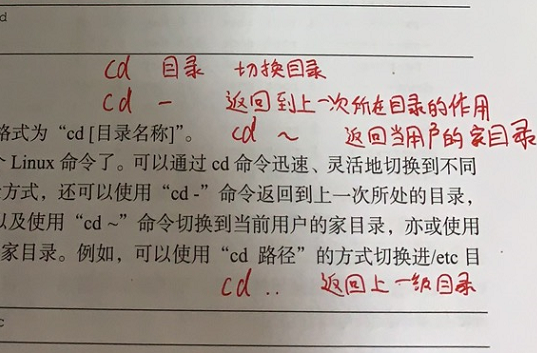 d
cd 目录 切换目录
cd - 返回到上一次所在目录的作用
格式为“cd [目录名称]”。
cd ~ 返回当用户的家目录
个 Linux 命令了。可以通过 cd 命令迅速、灵活地切换到不同
方式，还可以使用“cd -”命令返回到上一次所处的目录，
以及使用“cd ~”命令切换到当前用户的家目录，亦或使用
家目录。例如，可以使用“cd 路径”的方式切换进/etc 目
cd .. 返回上一级目录
c